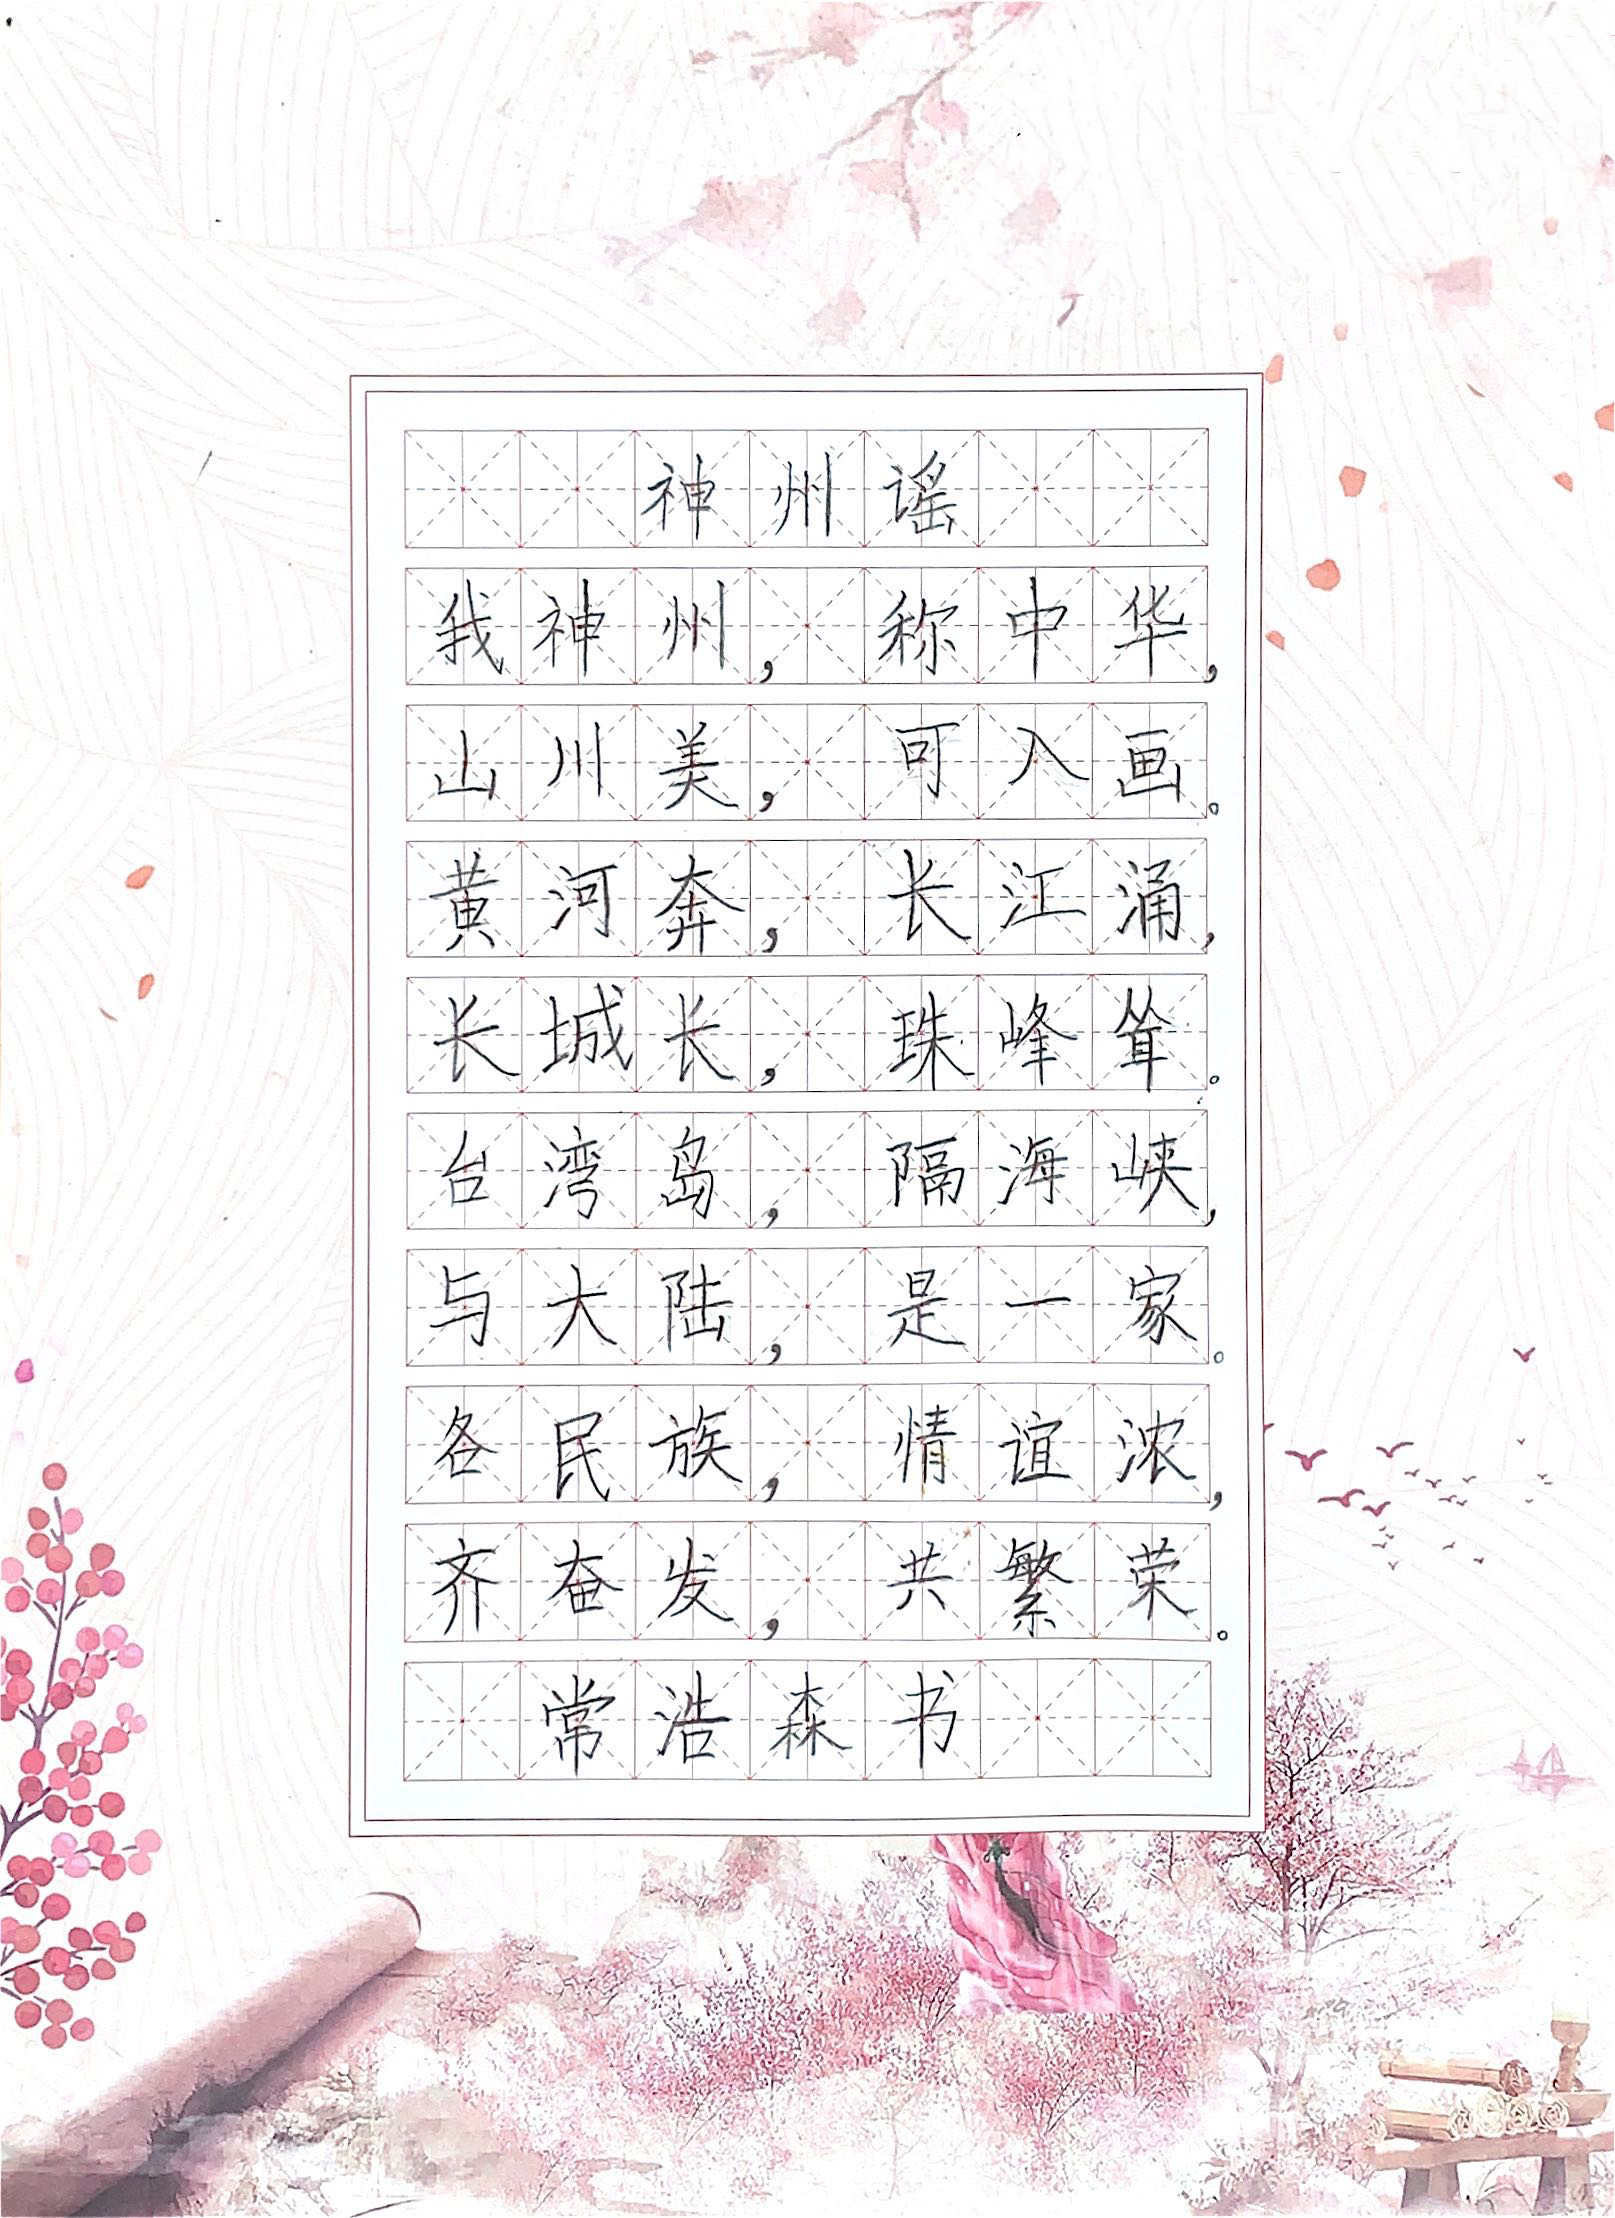 神州谣
我神州，称中华，
山川美，可入画。
黄河奔，长江涌，
长城长，珠峰耸。
台湾岛，隔海峡，
与大陆，是一家。
各民族，情谊浓，
齐奋发，共繁荣。
常浩森书